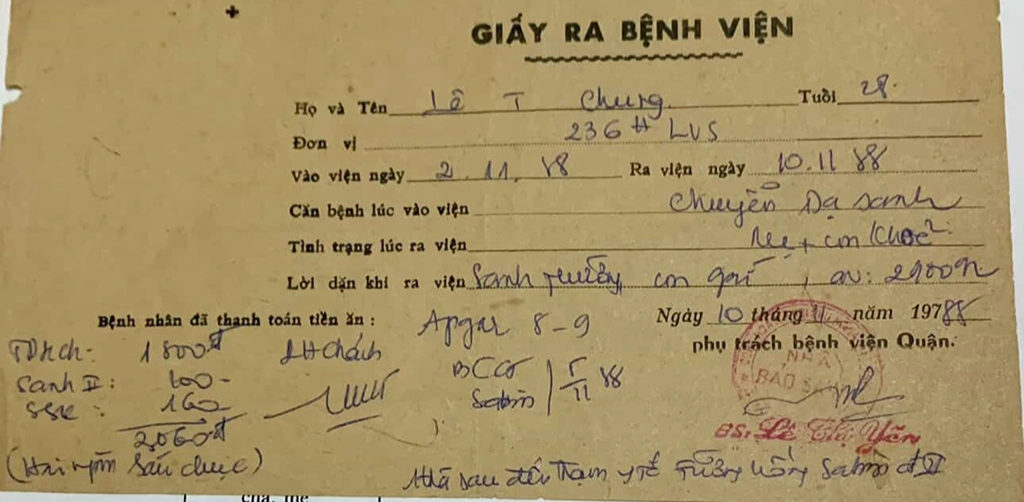 GIẤY RA BỆNH VIỆN
Họ và Tên Lê T Chung Tuổi 28.
Đơn vị 236 LVS
Vào viện ngày 2.11.88 Ra viện ngày 10.11 88
Căn bệnh lúc vào viện Chuyển Dạ sanh
Tình trạng lúc ra viện Mẹ + con khoẻ
Lời dặn khi ra viện Sanh thường, con gái, 2900
Bệnh nhân đã thanh toán tiền ăn : Apgar 8-9 Ngày 10 tháng 11 năm 19788
phụ trách bệnh viện Quận.
1800đ
Sanh II: 100-
160
2060đ
BCG
Sabin 5/11 88
NHÀ
BẢO SANH
BS: Lê Thị Yến
(Hai ngàn Sáu chục)
sau đến Trạm y tế uống Sabin
cha, mẹ